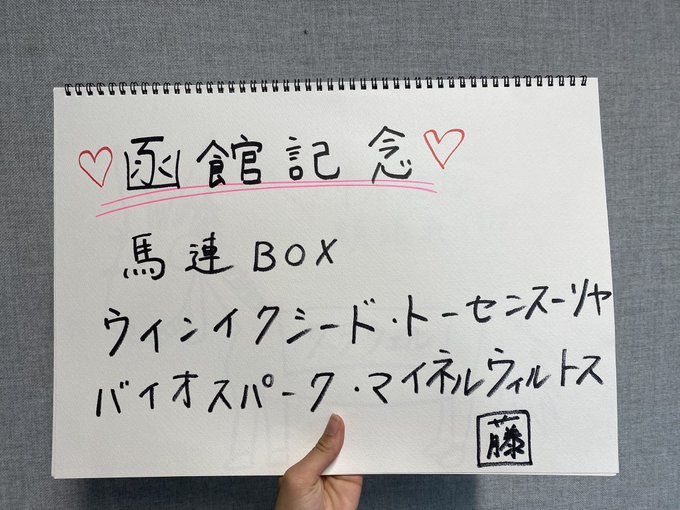 ♡函館記念♡
馬連BOX
ウインイクシード・トーセンスーリヤ
バイオスパーク・マイネルウィルトス
藤